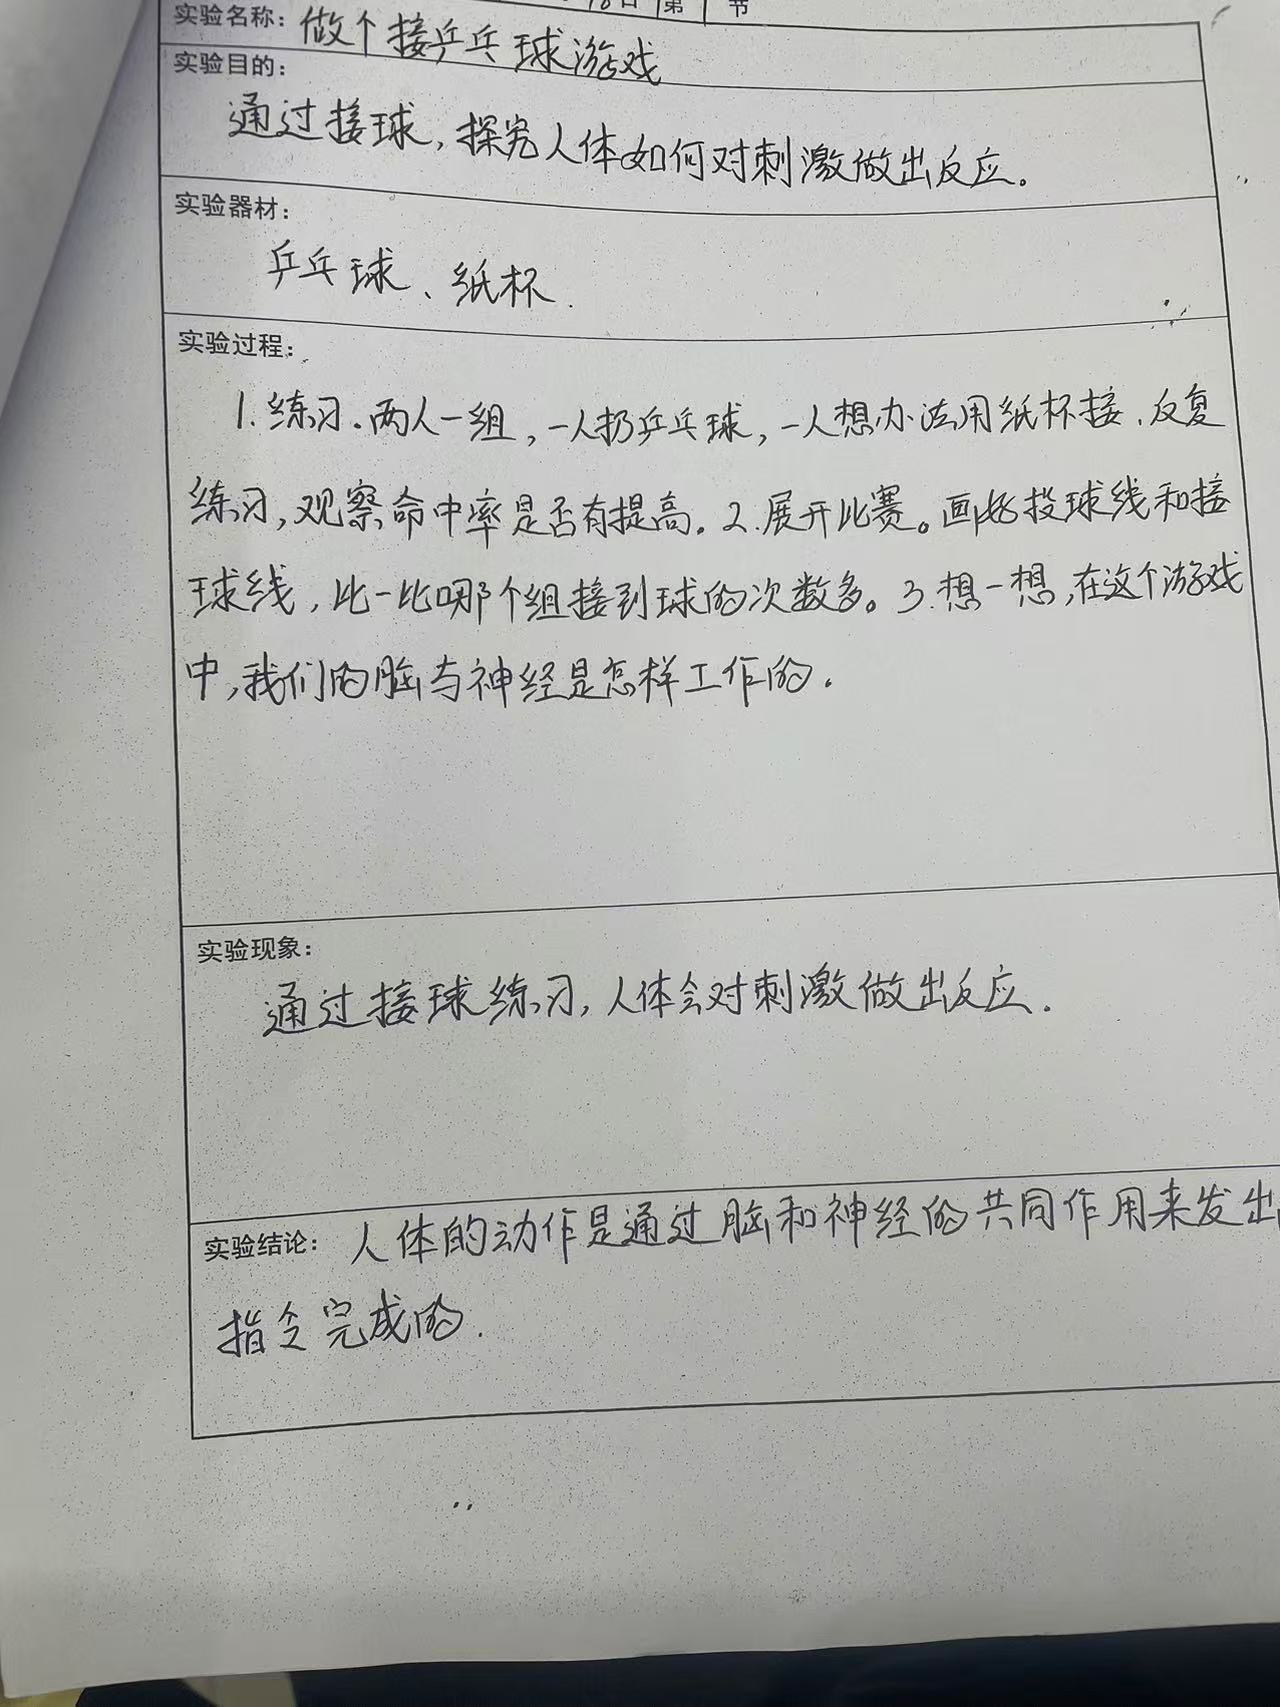 18日 第 节
实验名称: 做个接乒乓球游戏
实验目的:
通过接球,探究人体如何对刺激做出反应。
实验器材:
乒乓球、纸杯.
实验过程:
1.练习。两人一组,一人扔乒乓球,一人想办法用纸杯接.反复
练习,观察命中率是否有提高。2.展开比赛。画好投球线和接
球线,比一比哪个组接到球的次数多。3.想一想,在这个游戏
中,我们的脑与神经是怎样工作的.
实验现象:
通过接球练习,人体会对刺激做出反应.
实验结论: 人体的动作是通过脑和神经的共同作用来发出
指令完成的.